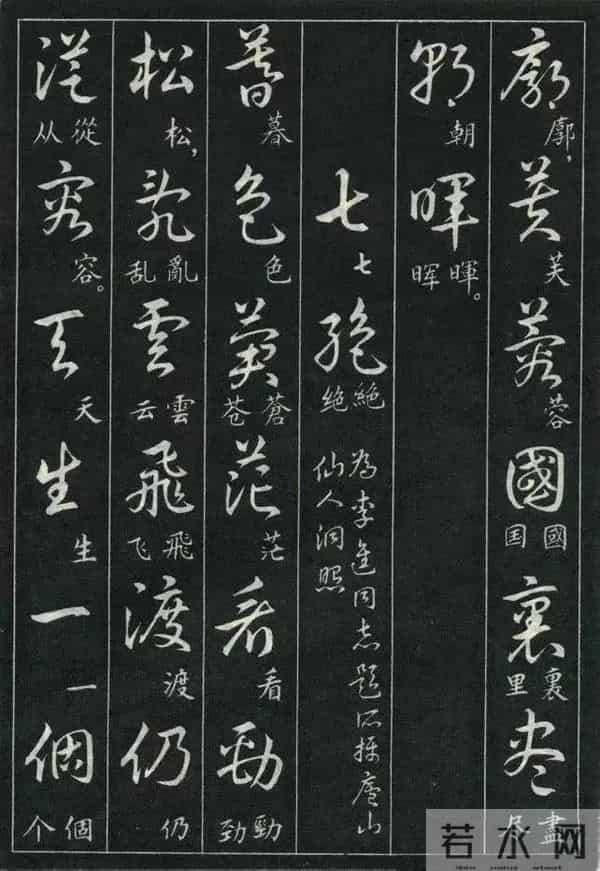 廓廓，芙芙蓉蓉國國国裏裏里盡盡尽
朝朝暉暉晖。
七七絶絶绝
为李進同志题所摄廬山
仙人洞照
暮暮色色蒼蒼苍茫茫看看勁勁劲
松松，亂亂乱雲雲云飛飛飞渡渡仍仍
從從从容容。天天生生一一個個个
若水网